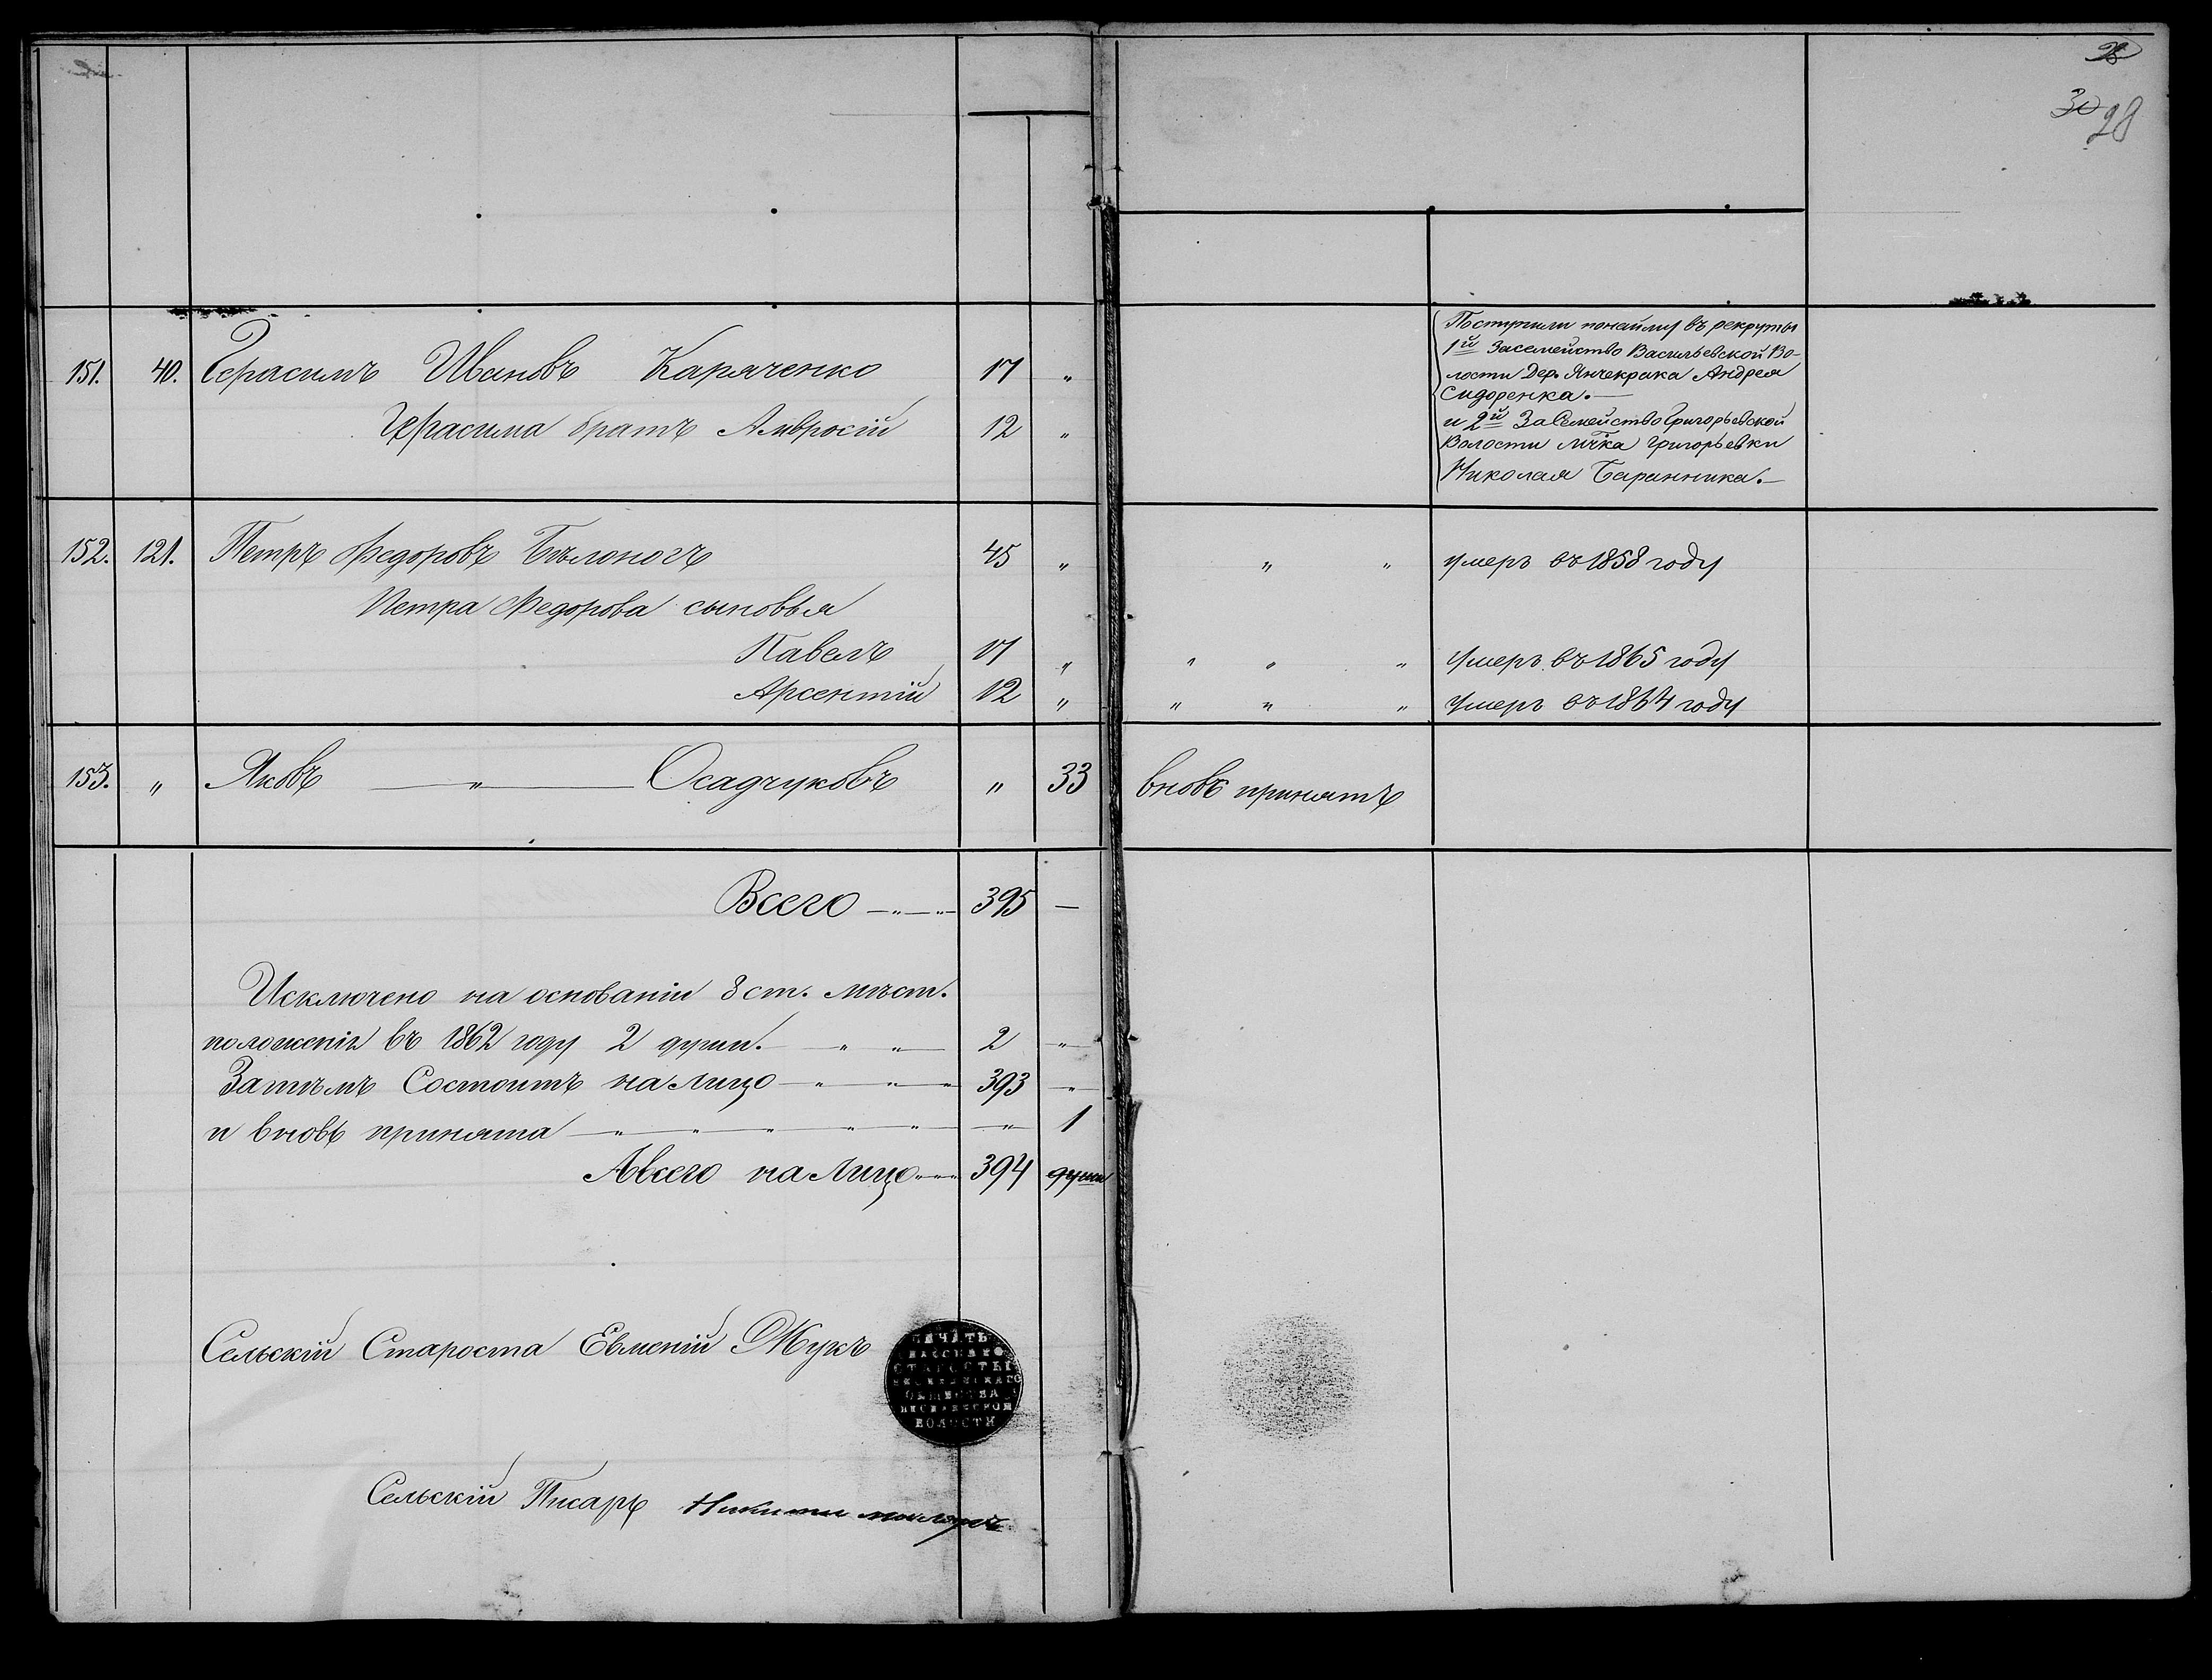 30 28
151. 40. Герасимъ Ивановъ Караченко 17 "
Герасима братъ Амвросій 12 "
Поступили понайму въ рекруты
1й Засемейство Васильевской Во-
лости Дер. Янчекрака Андрея
Сидоренка.—
и 2й За Семейство Григорьевской
Волости М-ка Григорьевки
Николая Баранника.—
152. 121. Петръ Федоровъ Бѣлоногъ 45 " " " умеръ въ 1858 году
Петра Федорова сыновья
Павелъ 17 " " " " Умеръ въ 1865 году
Арсентій 12 " " " " Умеръ въ 1864 году
153. " Яковъ — " — Осадчуковъ " 33 вновь принятъ
Всего 395 —
Исключено на основаніи 8 ст. мѣст.
положенія въ 1862 году 2 души. 2 "
Затѣмъ Состоитъ на лицо 393 "
и вновь принята " 1
А всего на Лицо 394 души
Сельскій Староста Евменій Жукъ
ПЕЧАТЬ
СТАРОСТЫ
ОБЩЕСТВА
ВОЛОСТИ
Сельскій Писарь